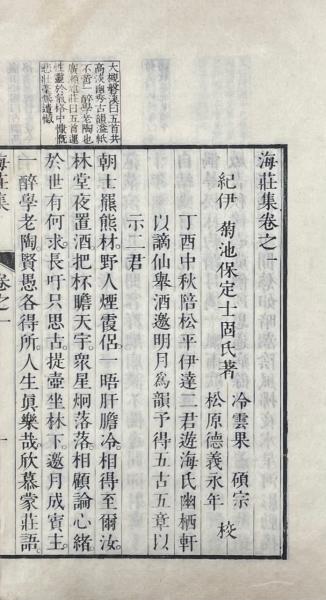 大槻磐溪曰五首共
高淡幽秀古韻溢紙
不啻一醉學老陶也
廣瀨旭莊曰五首運
性靈於氣格中慷慨
悲壯毫無遺憾
海莊集卷之一
紀伊 菊池保定士固氏著
冷雲果 碩宗
松原德義永年 校
丁酉中秋陪松平伊達二君遊海氏幽栖軒
以謫仙舉酒邀明月爲韻予得五古五章以
示二君
朝士羆熊材。野人煙霞侶。一晤肝膽冷。相得至爾汝。
林堂夜置酒。把杯瞻天宇。衆星炯落落。相顧論心緒。
於世有何求。長吁只思古。提壺坐林下。邀月成賓主。
一醉學老陶。賢愚各得所。人生眞樂哉。欣慕蒙莊語。
海莊集 卷之一 一